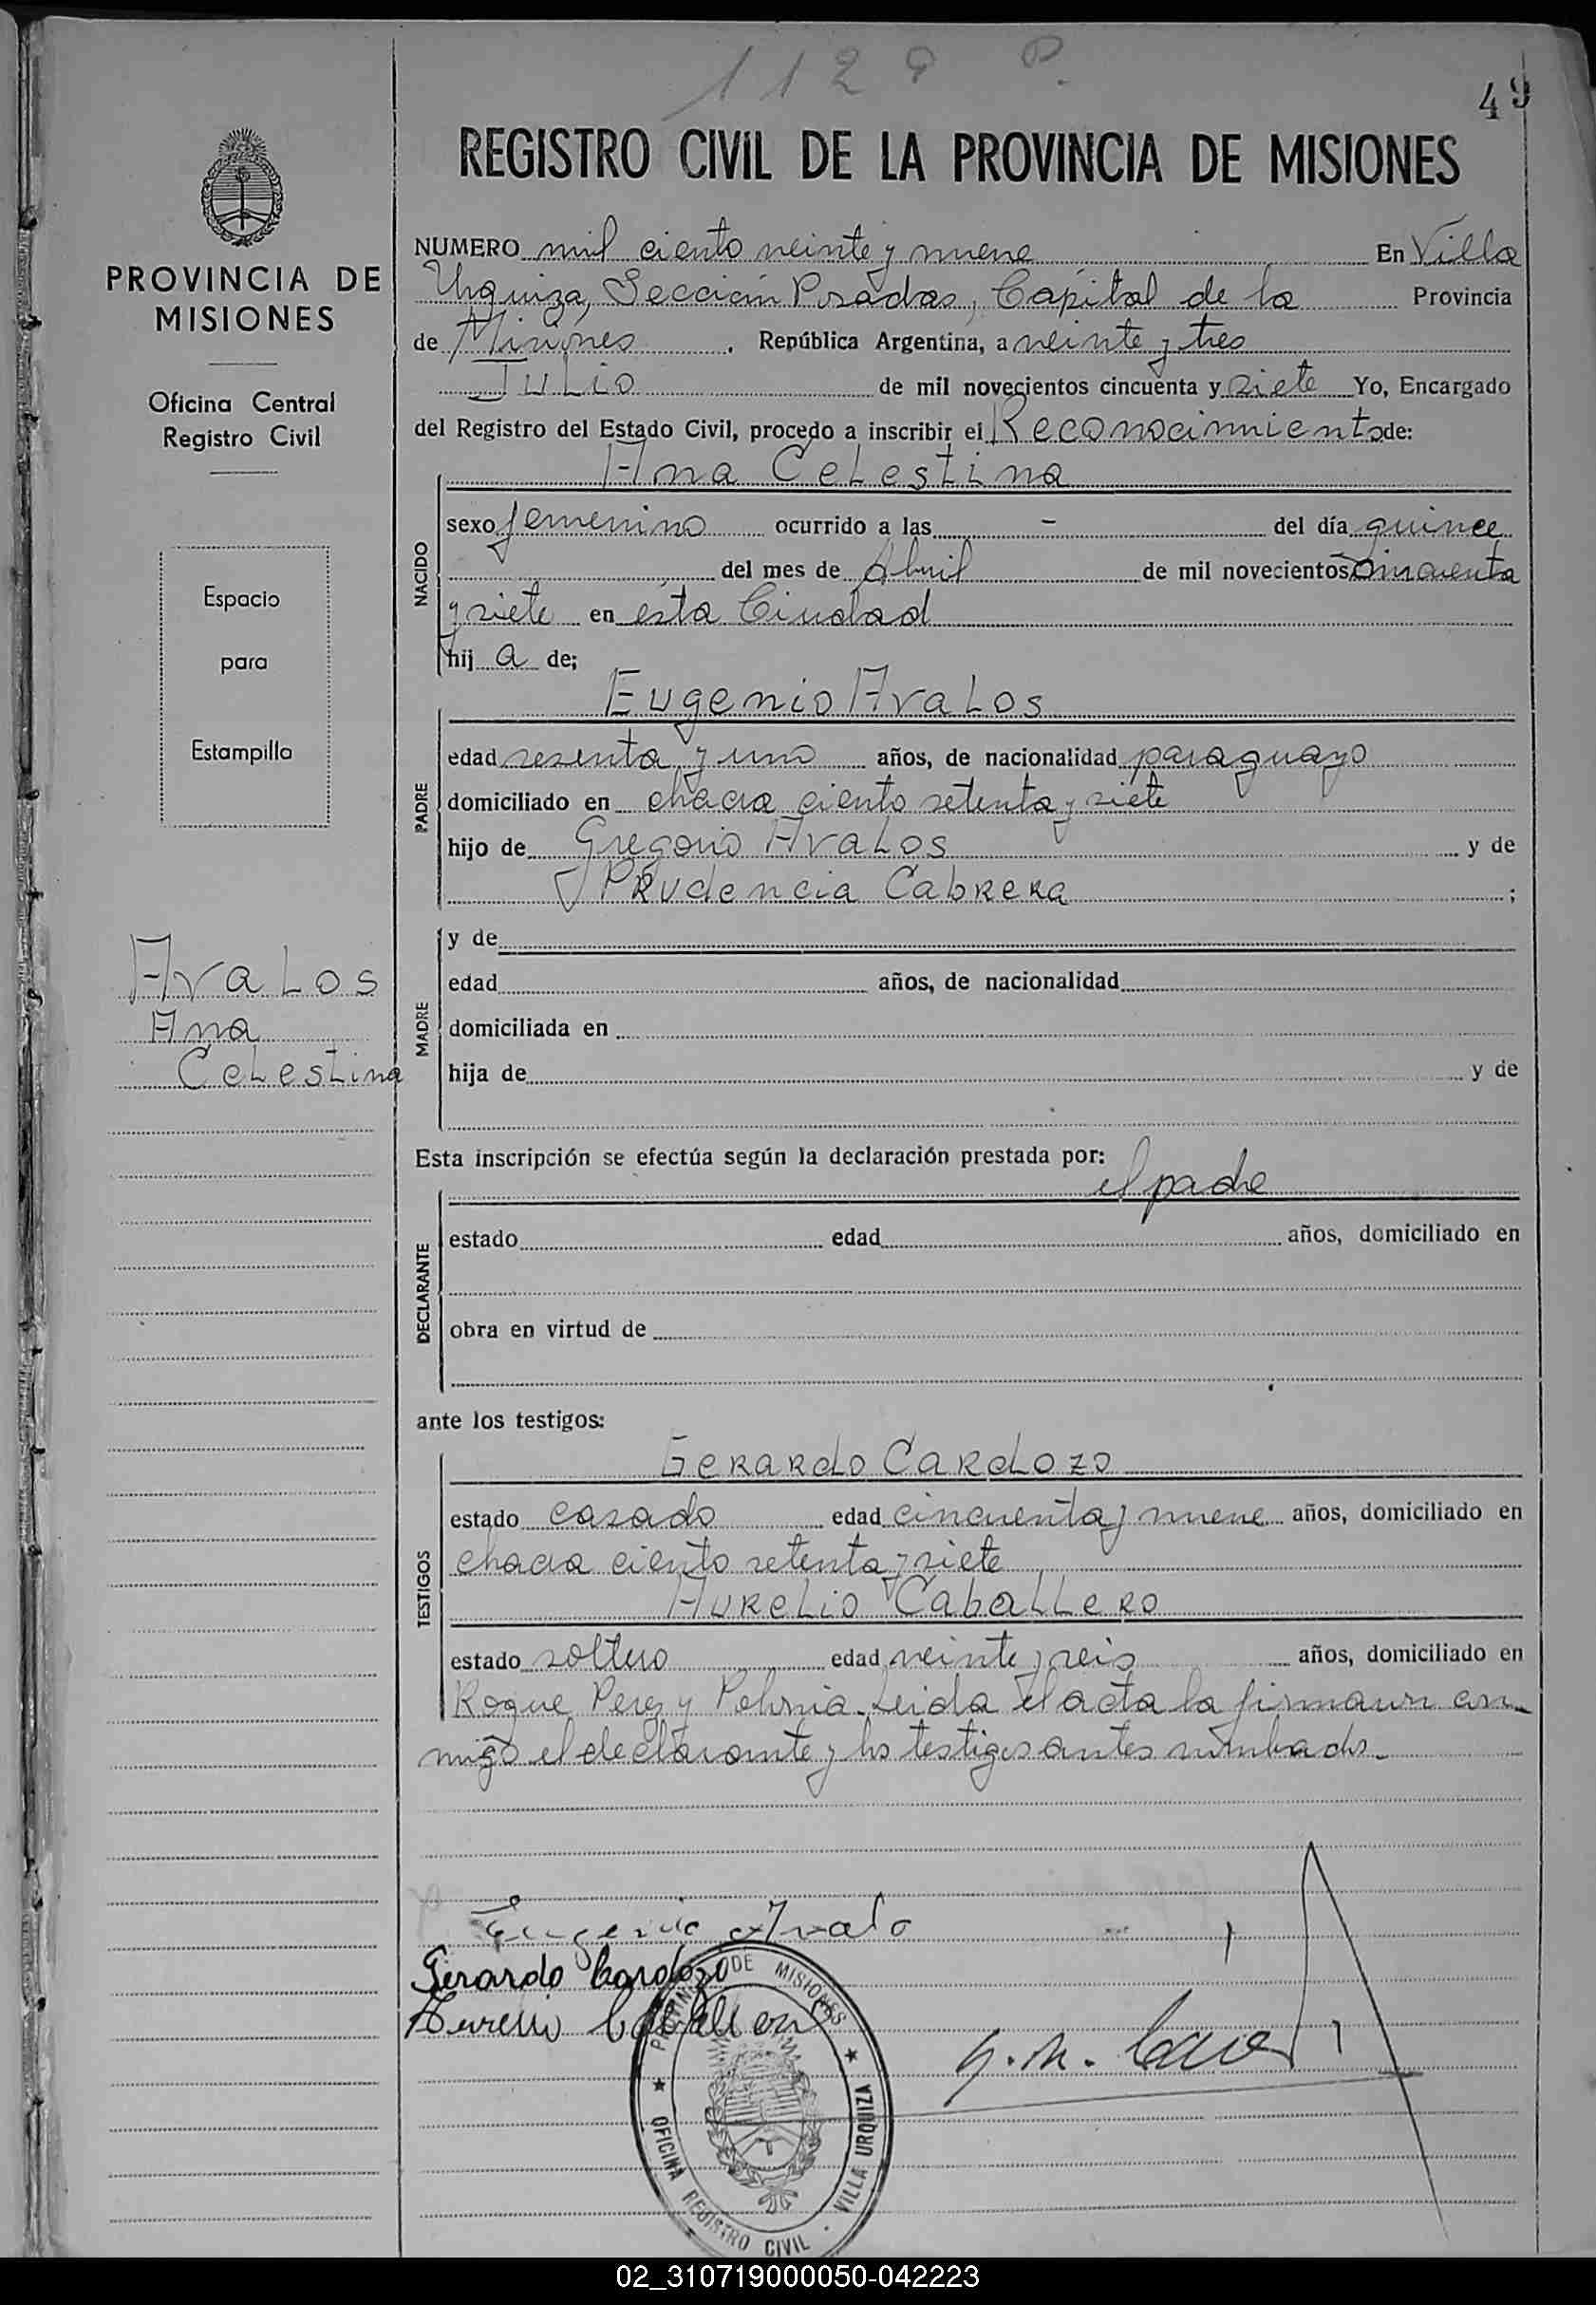 1129 P.
49
REGISTRO CIVIL DE LA PROVINCIA DE MISIONES
PROVINCIA DE
MISIONES
Oficina Central
Registro Civil
Espacio
para
Estampilla
Avalos
Ana
Celestina
NUMERO mil ciento veinte y nueve En Villa
Urquiza, Sección Posadas, Capital de la Provincia
de Misiones . República Argentina, a veinte y tres
Julio de mil novecientos cincuenta y siete Yo, Encargado
del Registro del Estado Civil, procedo a inscribir el Reconocimiento de:
Ana Celestina
NACIDO
sexo femenino ocurrido a las - del día quince
del mes de Abril de mil novecientos cincuenta
y siete en esta Ciudad
hij a de;
Eugenio Avalos
PADRE
edad sesenta y uno años, de nacionalidad paraguayo
domiciliado en chacra ciento setenta y siete
hijo de Gregorio Avalos y de
Prudencia Cabrera ;
MADRE
y de
edad años, de nacionalidad
domiciliada en
hija de y de
Esta inscripción se efectúa según la declaración prestada por:
el padre
DECLARANTE
estado edad años, domiciliado en
obra en virtud de
ante los testigos:
Gerardo Cardozo
TESTIGOS
estado casado edad cincuenta y nueve años, domiciliado en
chacra ciento setenta y siete
Aurelio Caballero
estado soltero edad veinte y seis años, domiciliado en
Roque Perez y Polonia. Leida el acta la firmaron con-
migo el declarante y los testigos antes nombrados.-
Eugenio Avalo
Gerardo Cardozo
Aurelio Caballero
PROVINCIA DE MISIONES
OFICINA REGISTRO CIVIL · VILLA URQUIZA
02_310719000050-042223